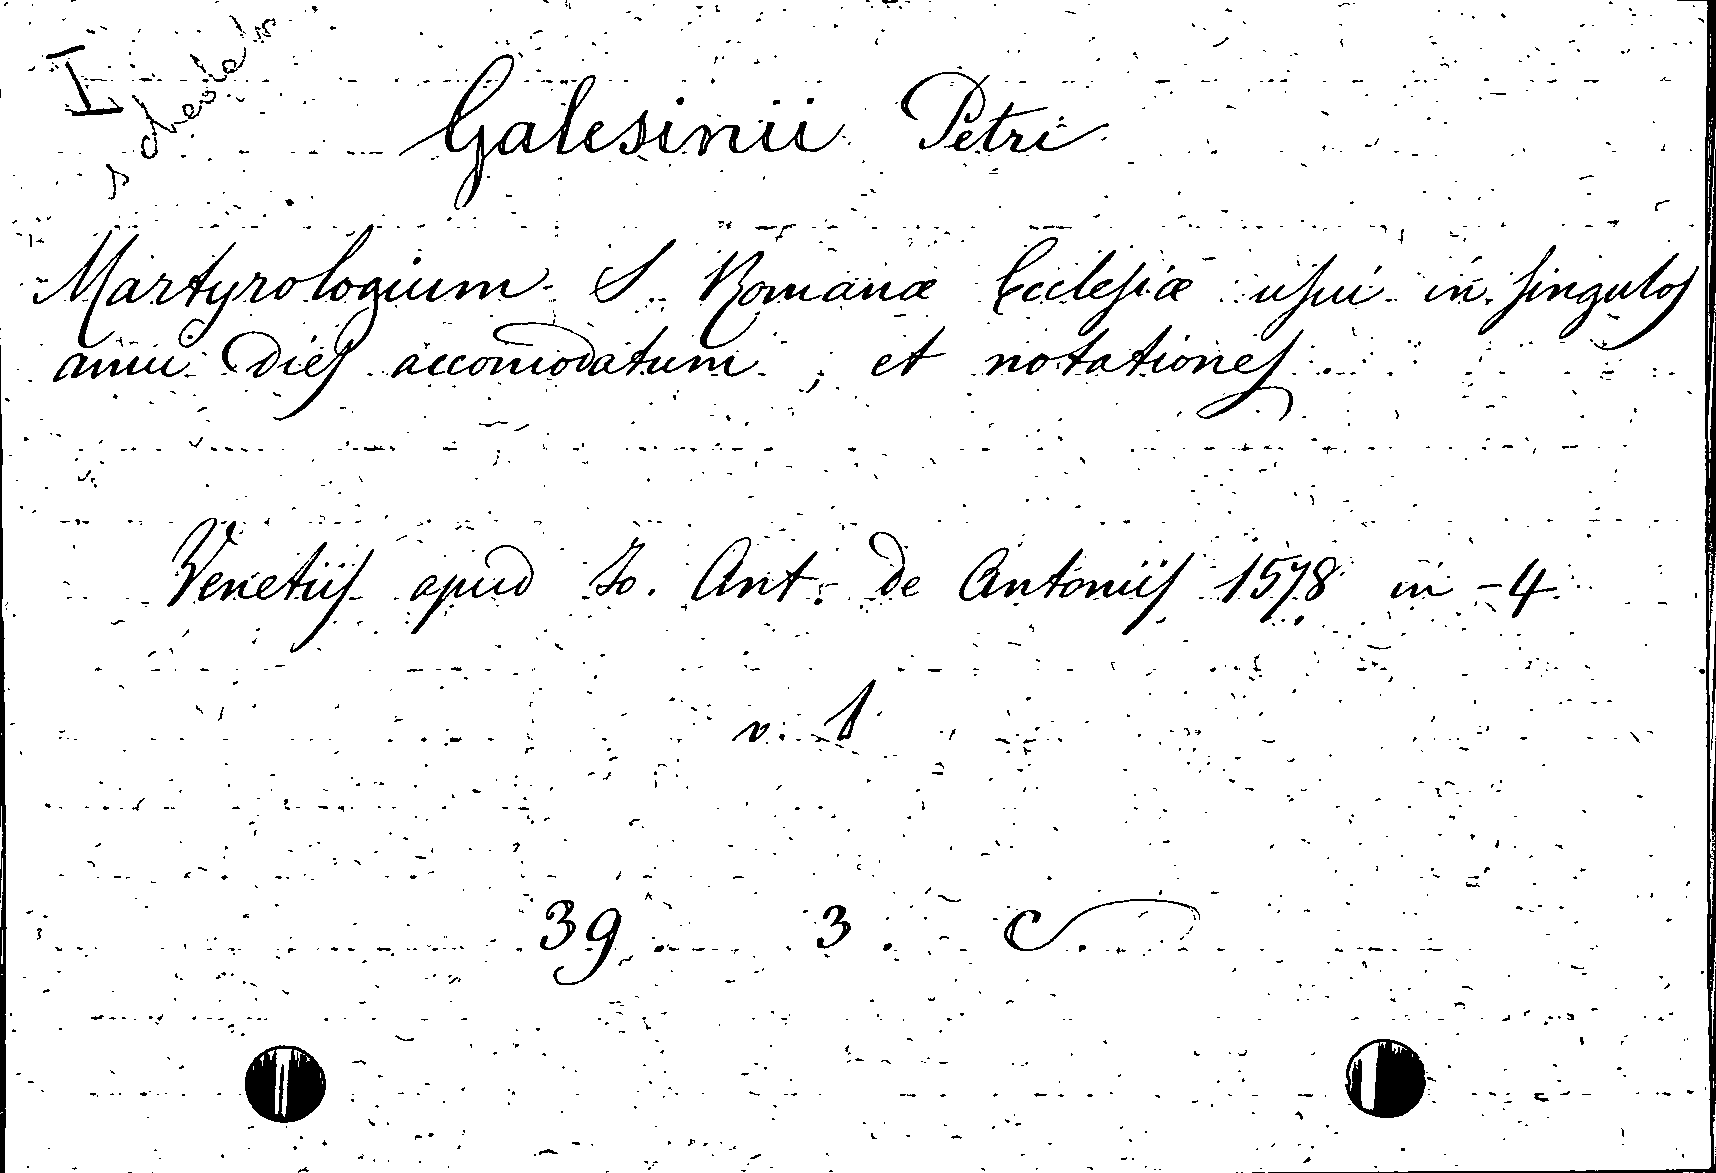 I
Galesinii Petri
Martyrologium S. Romanæ Ecclesiæ usui in singulos
anni dies accomodatum, et notationes.
Venetiis apud Io. Ant. de Antoniis 1578 in -4
v. 1
39 3. C